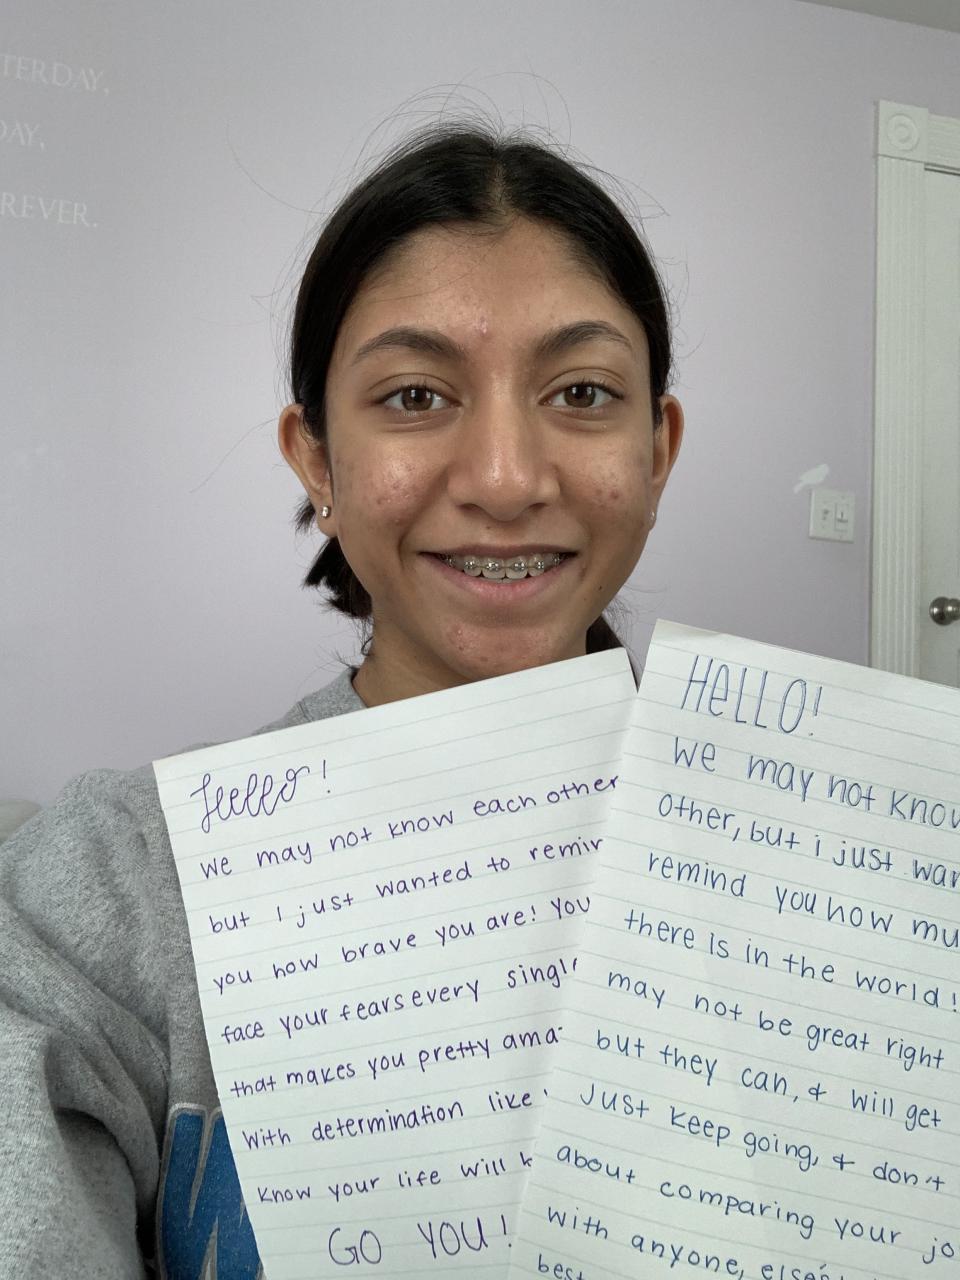 TERDAY,
DAY,
REVER.
Hello!
we may not know each other
but I just wanted to remin
you how brave you are! You
face your fears every singl
that makes you pretty ama
With determination like
Know your life will
GO YOU!
HELLO!
we may not know
other, but i just wan
remind you how mu
there is in the world!
may not be great right
but they can, & will get
Just keep going, & don't
about comparing your jo
with anyone, else's
best